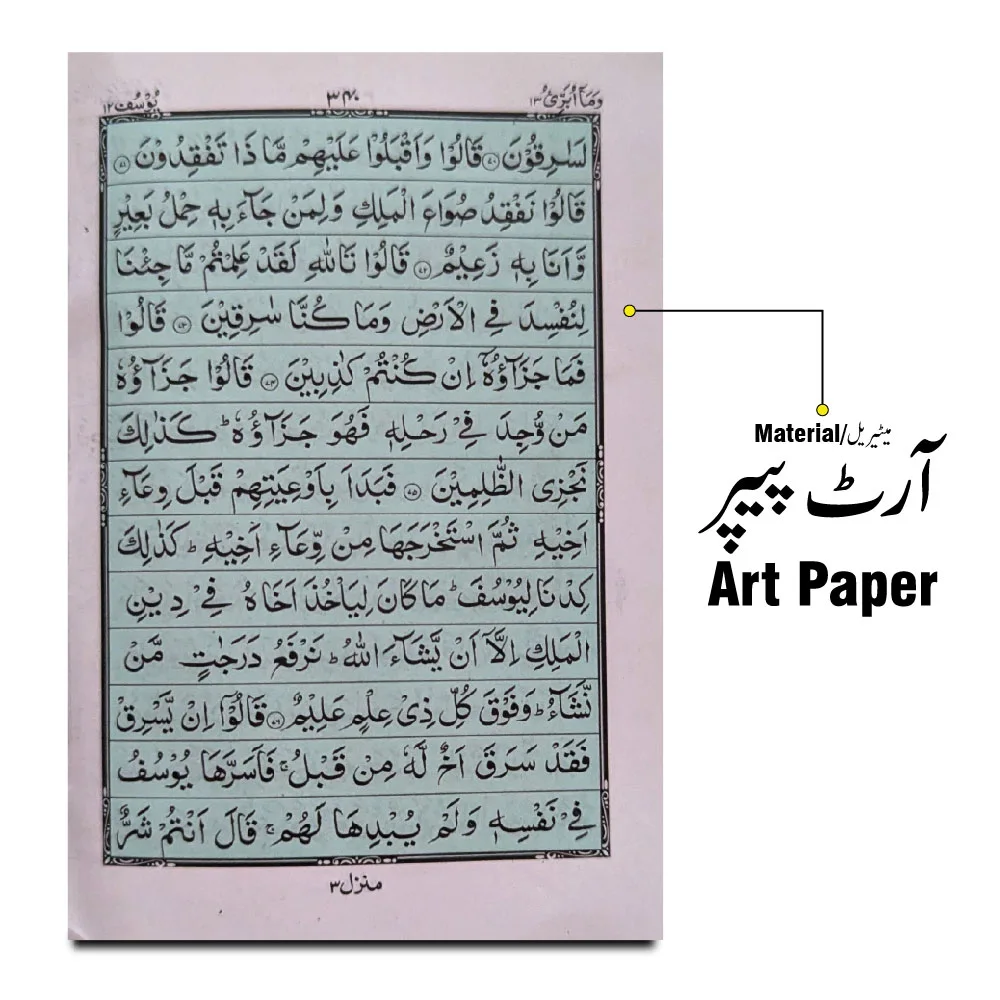 وَمَآ اُبَرِّئُ ١٣
٣٤٠
يُوْسُف ١٢
لَسٰرِقُوْنَ ۝٧٠ قَالُوْا وَاَقْبَلُوْا عَلَيْهِمْ مَّا ذَا تَفْقِدُوْنَ ۝٧١
قَالُوْا نَفْقِدُ صُوَاعَ الْمَلِكِ وَلِمَنْ جَآءَ بِهٖ حِمْلُ بَعِيْرٍ
وَّاَنَا بِهٖ زَعِيْمٌ ۝٧٢ قَالُوْا تَاللّٰهِ لَقَدْ عَلِمْتُمْ مَّا جِئْنَا
لِنُفْسِدَ فِي الْاَرْضِ وَمَا كُنَّا سٰرِقِيْنَ ۝٧٣ قَالُوْا
فَمَا جَزَآؤُهٗٓ اِنْ كُنْتُمْ كٰذِبِيْنَ ۝٧٤ قَالُوْا جَزَآؤُهٗ
مَنْ وُّجِدَ فِيْ رَحْلِهٖ فَهُوَ جَزَآؤُهٗ ؕ كَذٰلِكَ
نَجْزِى الظّٰلِمِيْنَ ۝٧٥ فَبَدَاَ بِاَوْعِيَتِهِمْ قَبْلَ وِعَآءِ
اَخِيْهِ ثُمَّ اسْتَخْرَجَهَا مِنْ وِّعَآءِ اَخِيْهِ ؕ كَذٰلِكَ
كِدْنَا لِيُوْسُفَ ؕ مَا كَانَ لِيَاْخُذَ اَخَاهُ فِيْ دِيْنِ
الْمَلِكِ اِلَّآ اَنْ يَّشَآءَ اللّٰهُ ؕ نَرْفَعُ دَرَجٰتٍ مَّنْ
نَّشَآءُ ؕ وَفَوْقَ كُلِّ ذِىْ عِلْمٍ عَلِيْمٌ ۝٧٦ قَالُوْٓا اِنْ يَّسْرِقْ
فَقَدْ سَرَقَ اَخٌ لَّهٗ مِنْ قَبْلُ ۚ فَاَسَرَّهَا يُوْسُفُ
فِيْ نَفْسِهٖ وَلَمْ يُبْدِهَا لَهُمْ ۚ قَالَ اَنْتُمْ شَرٌّ
منزل ٣
Material/میٹیریل
آرٹ پیپر
Art Paper